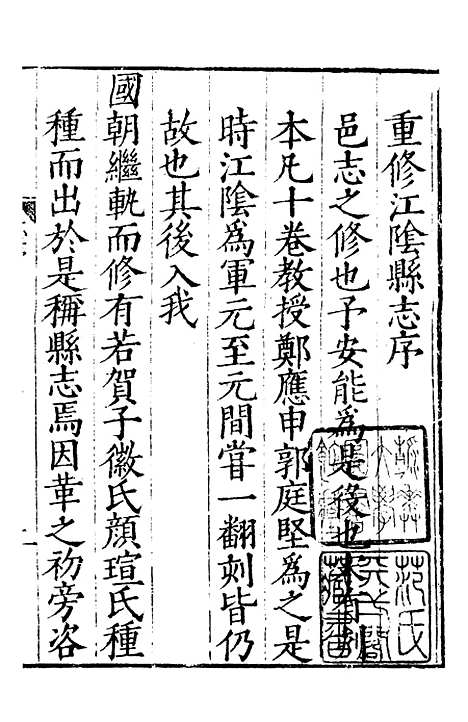 重修江陰縣志序
邑志之修也予安能爲是役也宋有刻
本凡十卷教授鄭應申郭庭堅爲之是
時江陰爲軍元至元間嘗一翻刻皆仍
故也其後入我
國朝繼軌而修有若賀子徽氏顔瑄氏種
種而出於是稱縣志焉因革之初旁咨
范氏天一閣藏書